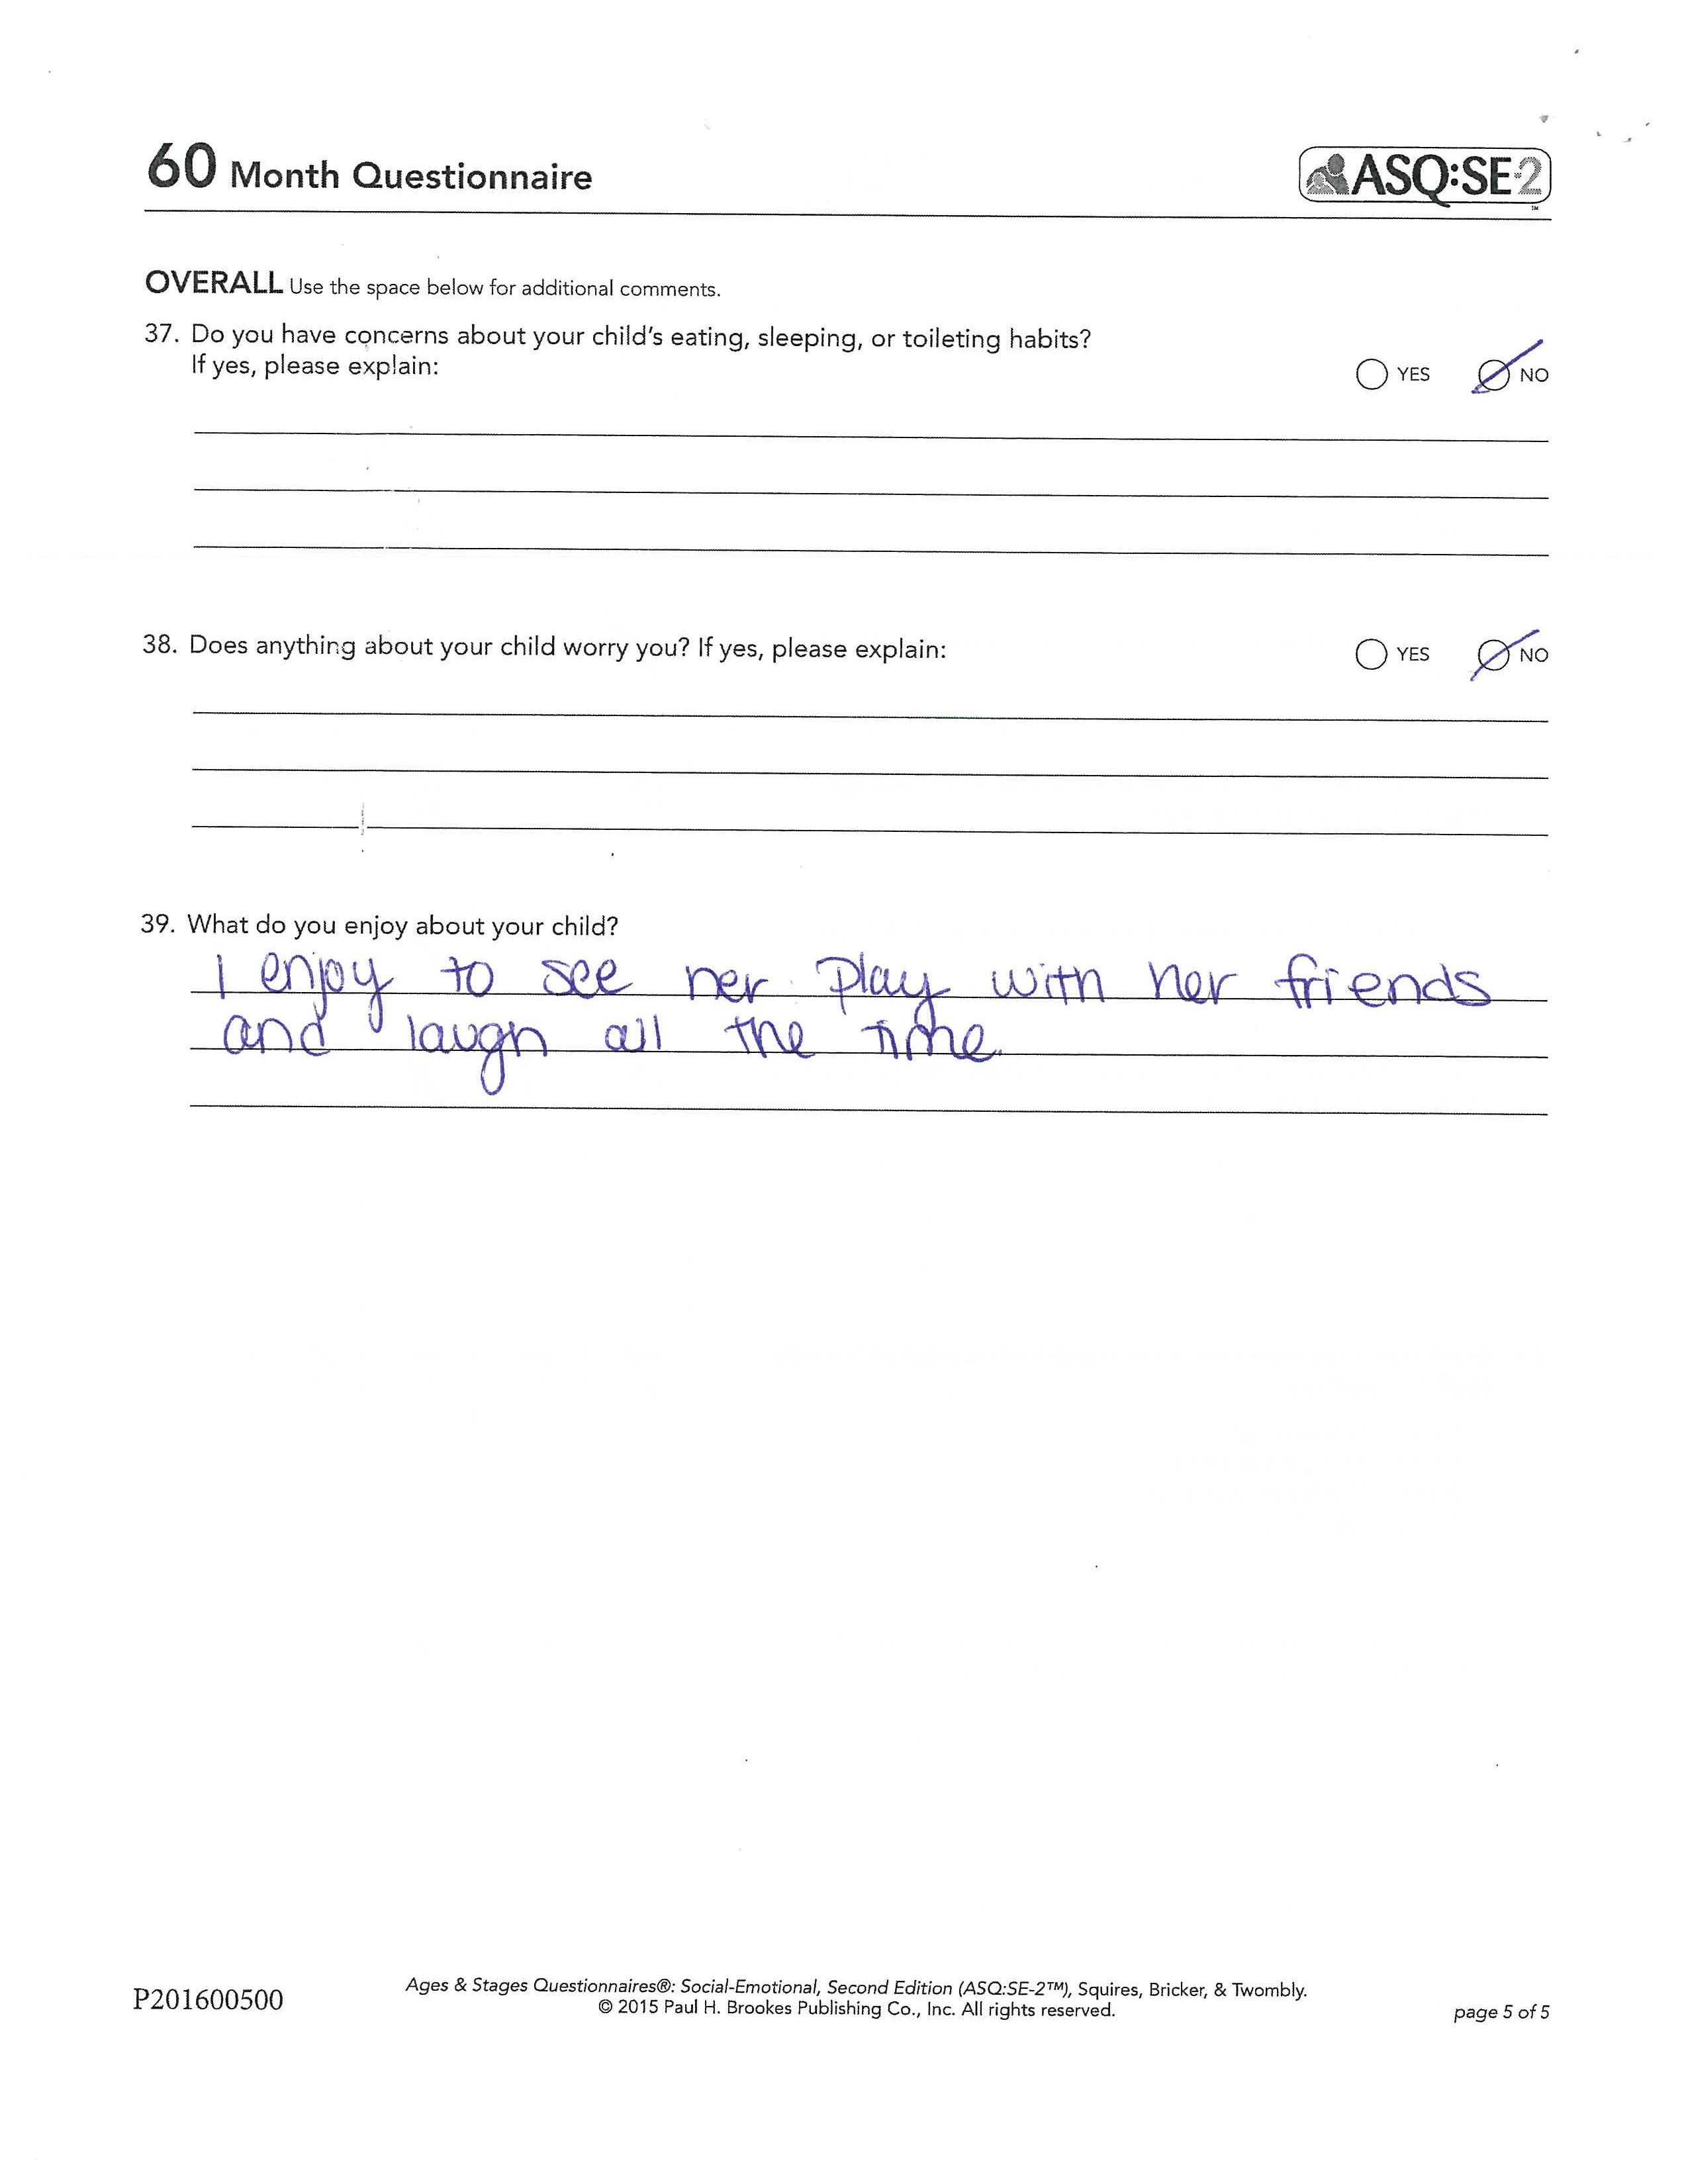 60 Month Questionnaire
ASQ:SE-2™
OVERALL Use the space below for additional comments.
37. Do you have concerns about your child's eating, sleeping, or toileting habits?
If yes, please explain:
YES NO
38. Does anything about your child worry you? If yes, please explain:
YES NO
39. What do you enjoy about your child?
I enjoy to see her play with her friends
and laugh all the time.
P201600500
Ages & Stages Questionnaires®: Social-Emotional, Second Edition (ASQ:SE-2™), Squires, Bricker, & Twombly.
© 2015 Paul H. Brookes Publishing Co., Inc. All rights reserved.
page 5 of 5